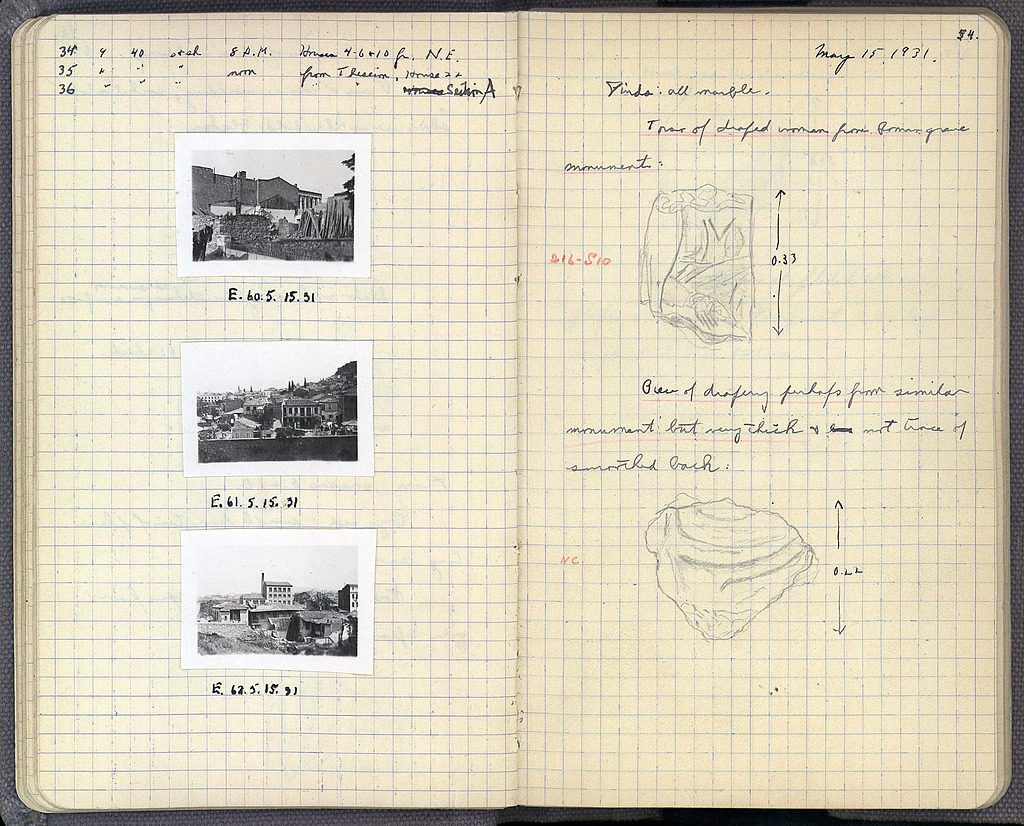 34 4 40 8 A.M. Houses 4-6 & 10 fr. N.E.
35 " " " noon from Theseion, House 22
36 " " " Section A
E. 60. 5. 15. 31
E. 61. 5. 15. 31
E. 62. 5. 15. 31
34.
May 15 1931.
Finds: all marble.
Torso of draped woman from Roman grave
monument:
S10
0.33
Piece of drapery perhaps from similar
monument but very thick & not trace of
smoothed back:
NC
0.22